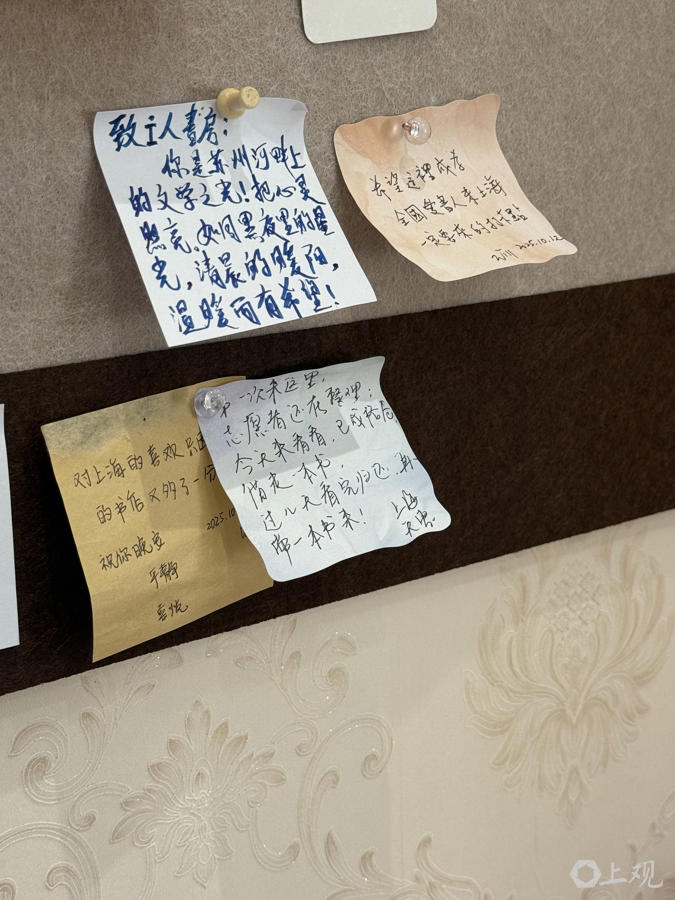 致i人書房：
你是苏州河畔上
的文学之光！把心灵
照亮，如同黑夜里的星
光，清晨的暖阳，
温暖而有希望！
希望这裡成为
全国爱书人来上海
一定要来的打卡点
2025.10.12
对上海的喜欢只因
的书店又多了一份
2025.10
祝你晚安
平静
喜悦
一次来这里，
志愿者还在整理；
今天来看看，已成格局，
借走一本书，
过几天看完归还，再
带一本书来！
上海
上观